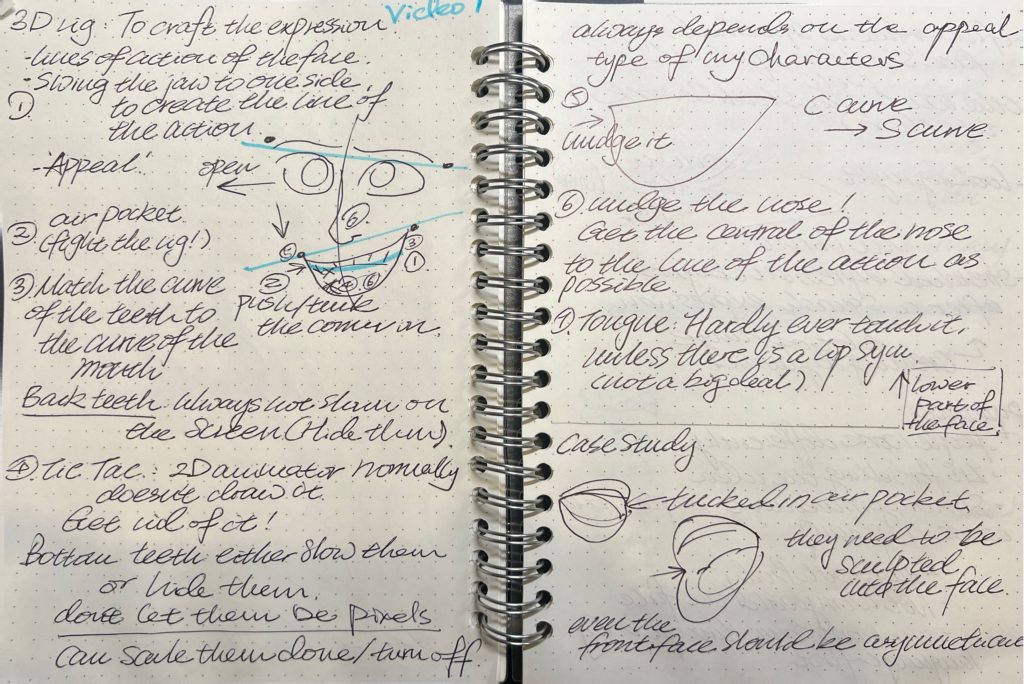 Video 1
3D rig: To craft the expression.
- lines of action of the face.
- Swing the jaw to one side,
① to create the line of
the action.
- 'Appeal'.
open
air pocket.
② (fight the rig!)
⑥
⑤
③
①
② ④ ⑥
push/tuck
the corner in.
③ Match the curve
of the teeth to
the curve of the
mouth
Back teeth: always not shown on
the screen (Hide them).
④ Tic Tac: 2D animator normally
doesn't draw it.
Get rid of it!
Bottom teeth either show them
or hide them.
don't let them be pixels
Can scale them done/turn off
always depends on the appeal
type of my characters
⑤
nudge it
C curve
→ S curve
⑥ nudge the nose!
Get the central of the nose
to the line of the action as
possible
⑦ Tongue: Hardly ever touch it,
unless there is a lip sync.
(not a big deal)
↑ lower
part of
the face.
Case Study
← tucked in air pocket
they need to be
sculpted
into the face.
even the
front face should be asymmetrical